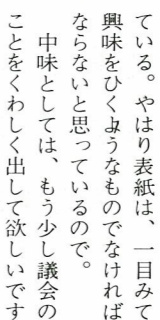 ている。やはり表紙は、一目みて
興味をひくようなものでなければ
ならないと思っているので。
中味としては、もう少し議会の
ことをくわしく出して欲しいです